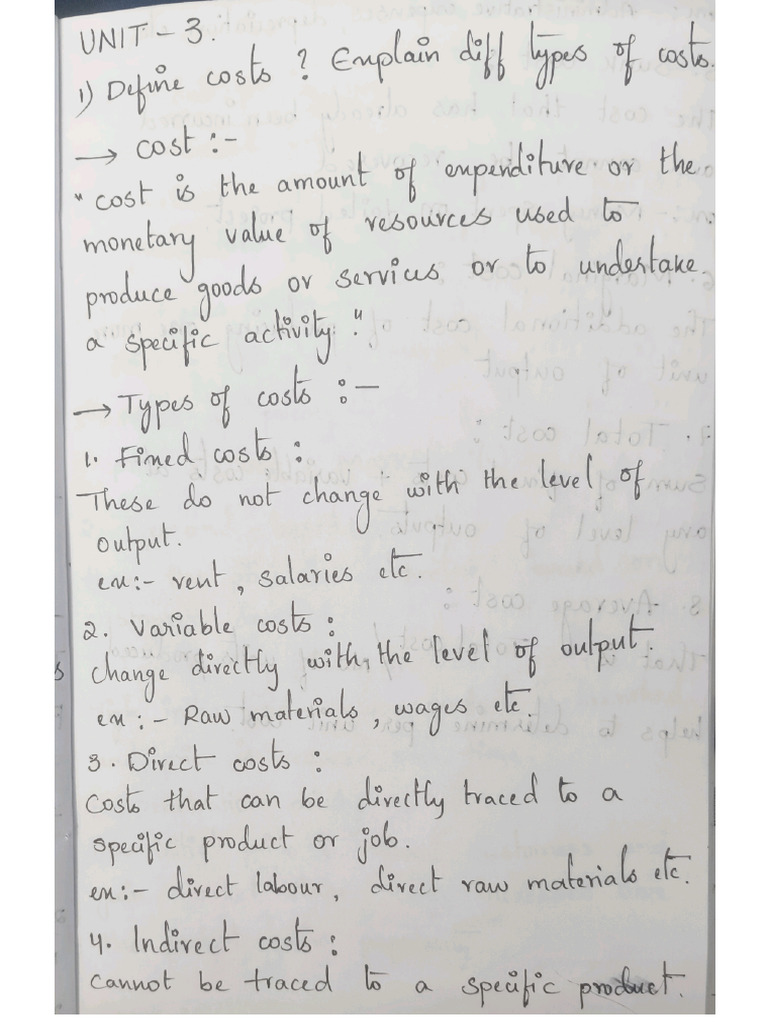 UNIT - 3.
1) Define costs ? Explain diff types of costs.
→ cost :-
"cost is the amount of expenditure or the
monetary value of resources used to
produce goods or services or to undertake
a specific activity."
→ Types of costs :-
1. Fixed costs :
These do not change with the level of
output.
ex:- rent, salaries etc.
2. Variable costs :
change directly with, the level of output.
ex :- Raw materials, wages etc.
3. Direct costs :
Costs that can be directly traced to a
specific product or job.
ex:- direct labour, direct raw materials etc.
4. Indirect costs :
cannot be traced to a specific product.